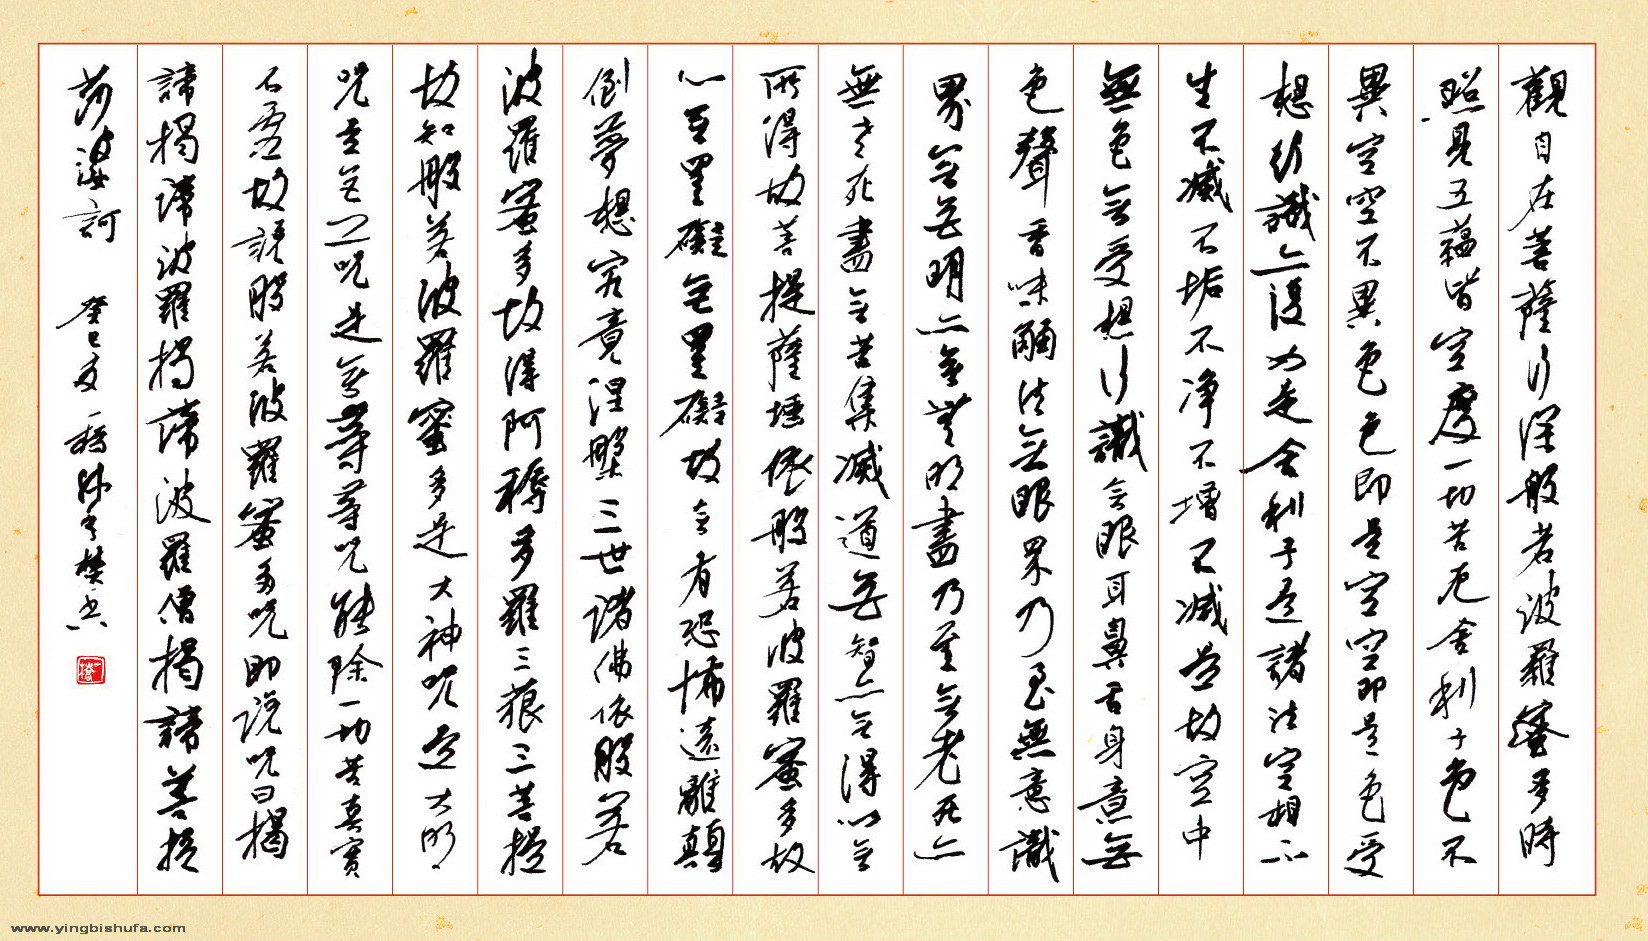 觀自在菩薩行深般若波羅蜜多時
照見五蘊皆空度一切苦厄舍利子色不
異空空不異色色即是空空即是色受
想行識亦復如是舍利子是諸法空相不
生不滅不垢不净不增不減是故空中
無色無受想行識無眼耳鼻舌身意無
色聲香味觸法無眼界乃至無意識
界無無明亦無無明盡乃至無老死亦
無老死盡無苦集滅道無智亦無得以無
所得故菩提薩埵依般若波羅蜜多故
心無罣礙無罣礙故無有恐怖遠離顛
倒夢想究竟涅槃三世諸佛依般若
波羅蜜多故得阿耨多羅三藐三菩提
故知般若波羅蜜多是大神咒是大明
咒是無上咒是無等等咒能除一切苦真實
不虛故說般若波羅蜜多咒即說咒曰揭
諦揭諦波羅揭諦波羅僧揭諦菩提
莎婆訶 癸巳夏一
www.yingbishufa.com